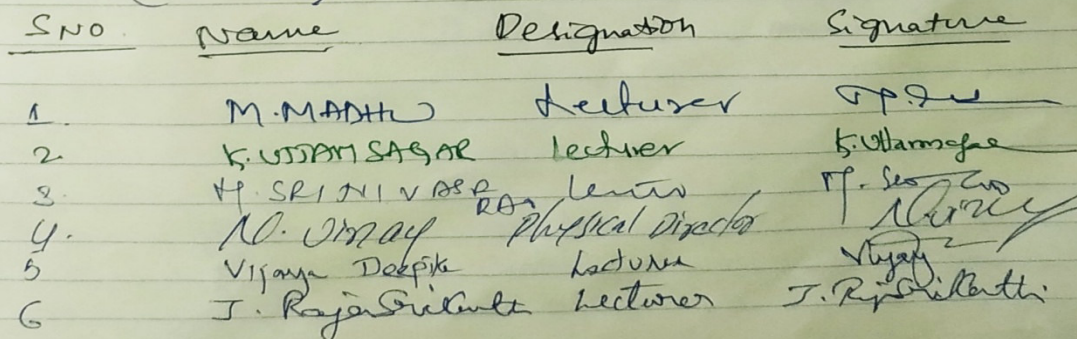 S NO. Name Designation Signature
1. M. MADHU Lecturer
2 K. UTTAM SAGAR Lecturer K. Uttamsagar
3. M. SRINIVASA RAO
4. N. Vinay Physical Director
5 Vijaya Deepika Lecturer Vijaya
6 J. Raja Srikanth Lecturer J. Raj Srikanth